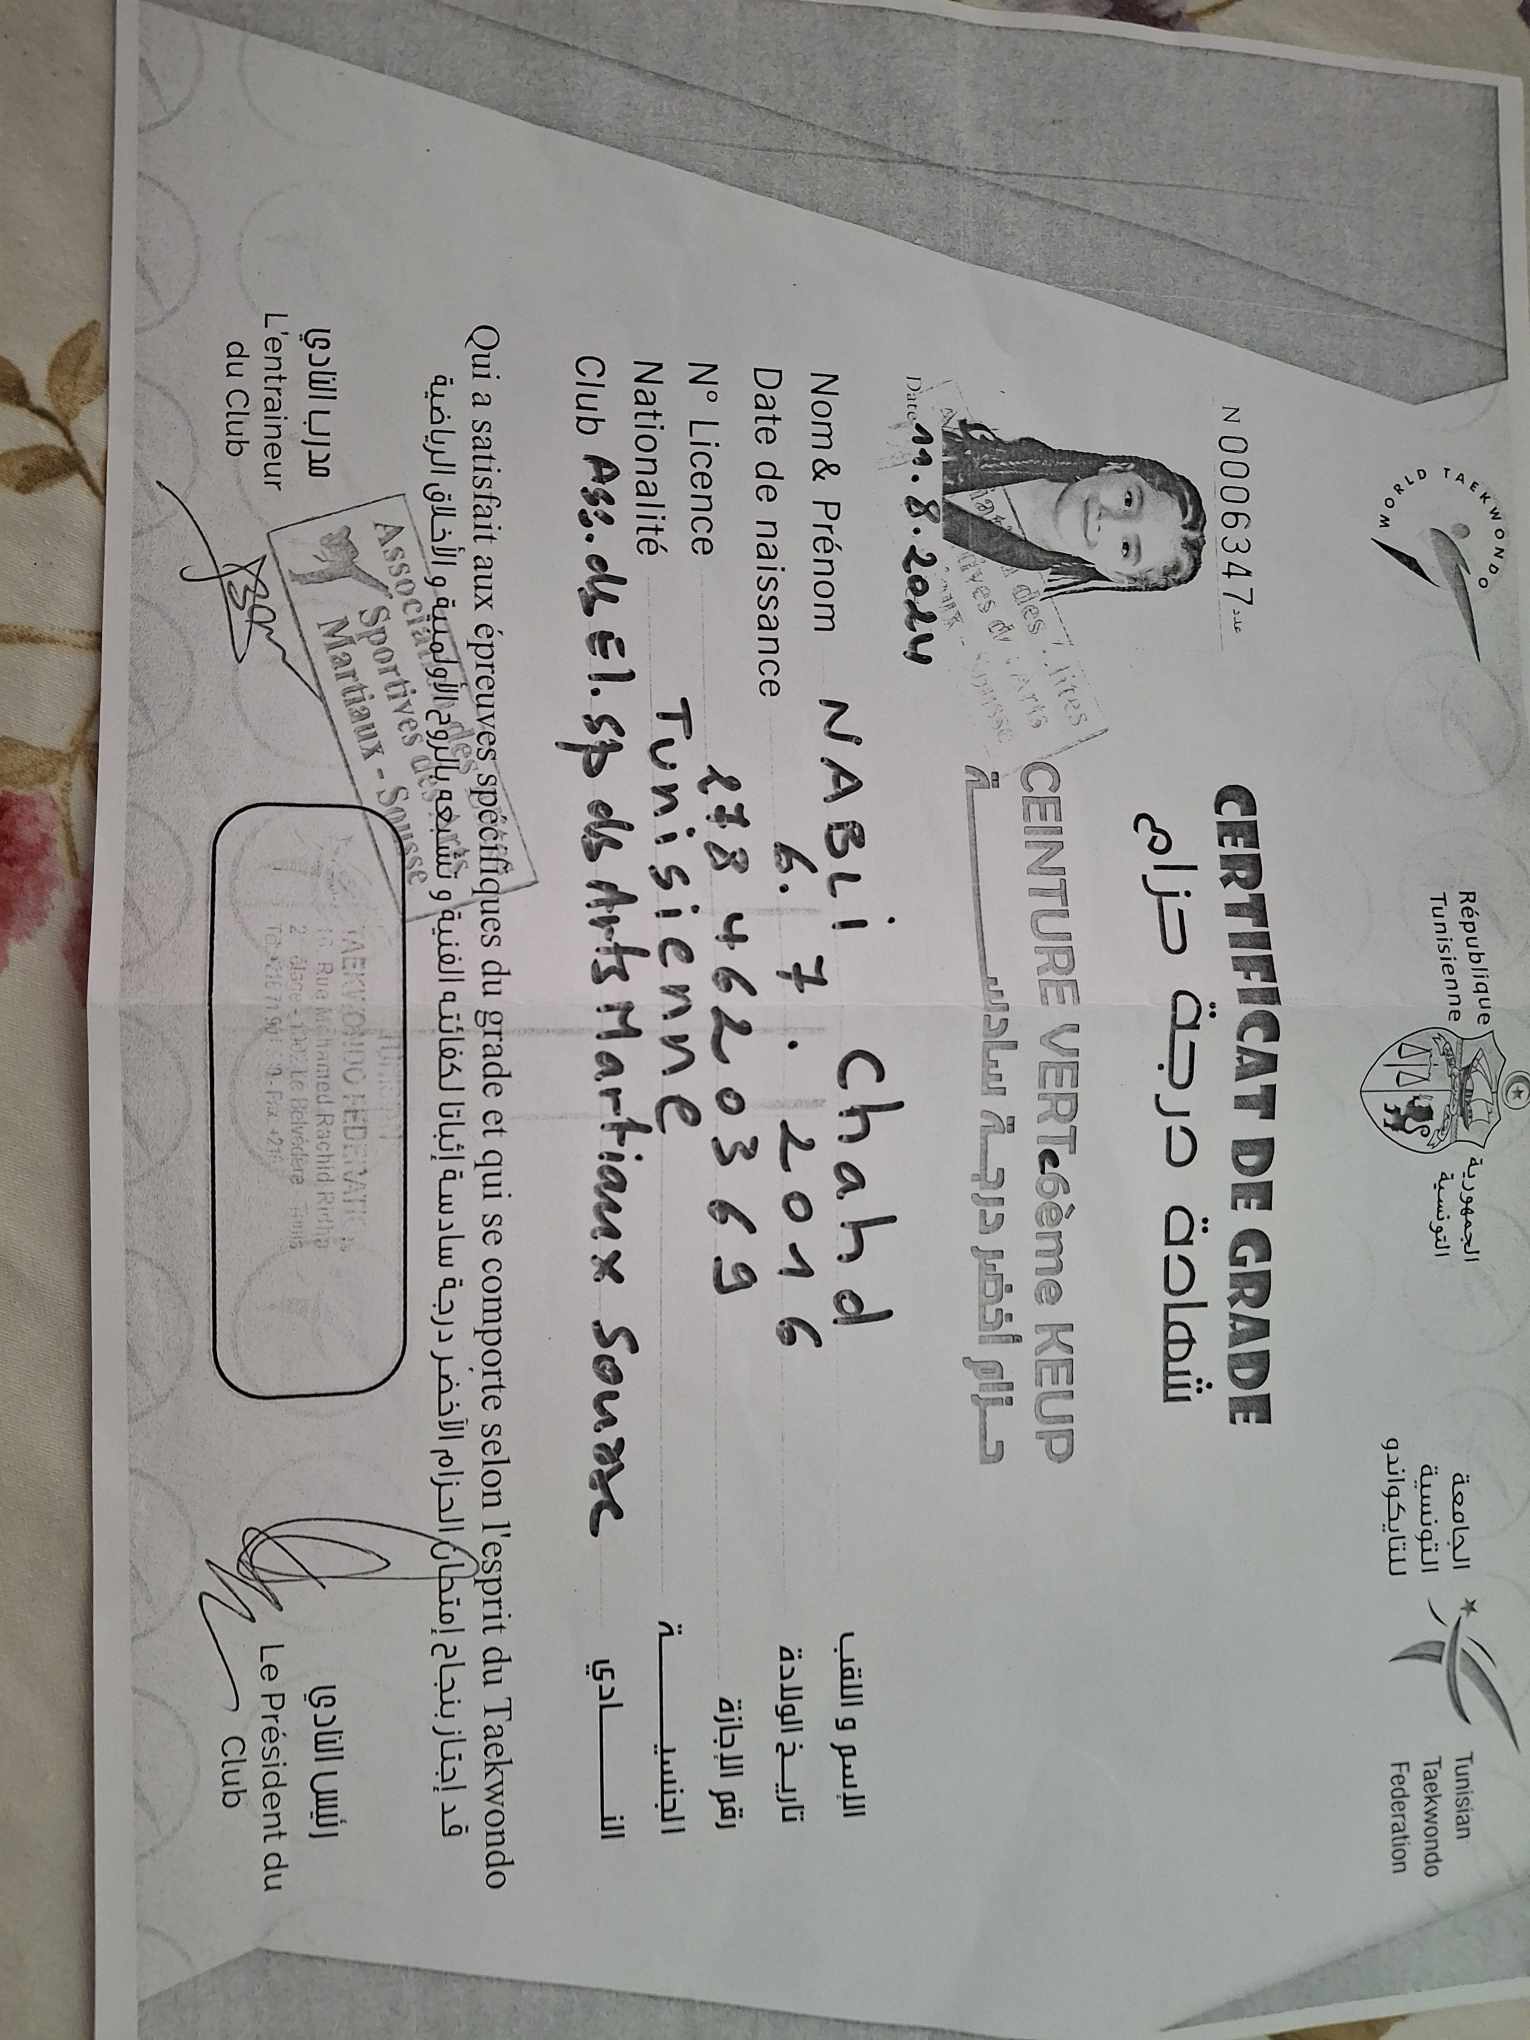 WORLD TAEKWONDO
République
Tunisienne
الجمهورية
التونسية
الجامعة
التونسية
للتايكواندو
Tunisian
Taekwondo
Federation
N 0006347 عدد
CERTIFICAT DE GRADE
شهادة درجة حزام
CEINTURE VERTe6ème KEUP
حـزام أخضر درجـة سادســـــة
Date 11.8.2024
Nom& Prénom NABLi Chahd الإسم و اللقب
Date de naissance 6.7.2016 تاريـخ الولادة
N° Licence 278462 03 69 رقم الإجازة
Nationalité Tunisienne الجنسيـــــة
Club Ass. ds El. Sp ds Arts Martiaux Sousse النـــــادي
Qui a satisfait aux épreuves spécifiques du grade et qui se comporte selon l'esprit du Taekwondo
قد إجتاز بنجاح إمتحان الحزام الأخضر درجة سادسة إثباتا لكفائته الفنية و تشبعه بالروح الأولمبية و الأخلاق الرياضية
مدرب النادي
L'entraineur
du Club
Sportives des
Martiaux - Sousse
TAEKWONDO FEDERATION
16, Rue Mohamed Rachid Ridha
Le Belvédère Tunis
رئيس النادي
Le Président du
Club